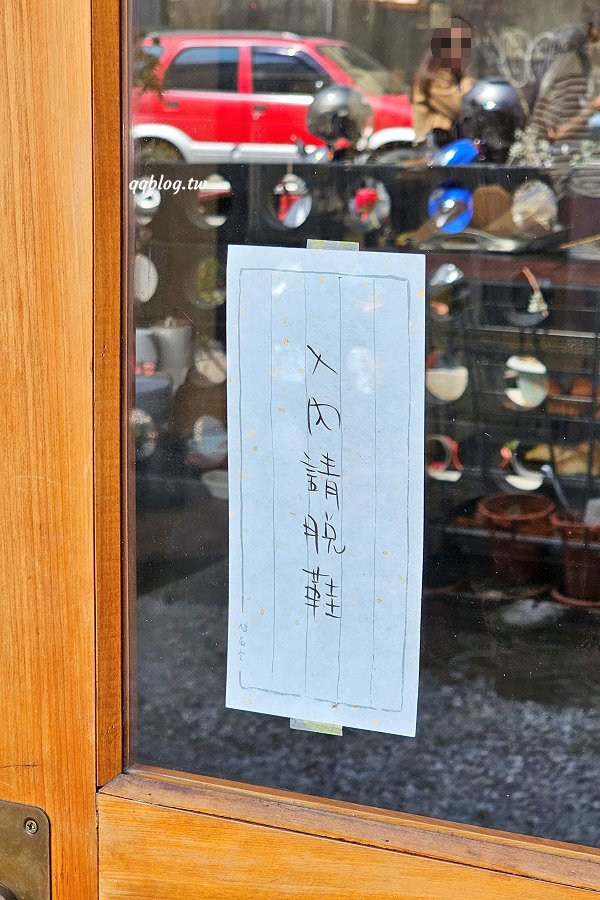 qqblog.tw
入內請脫鞋